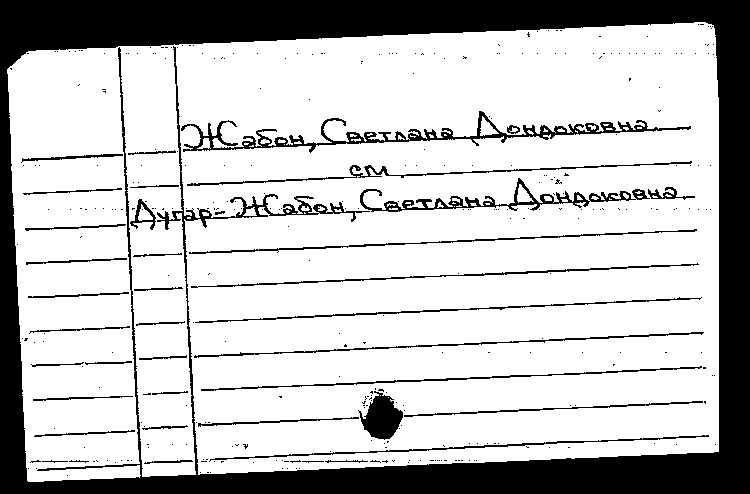 Жабон, Светлана Дондоковна.
см.
Дугар-Жабон, Светлана Дондоковна.